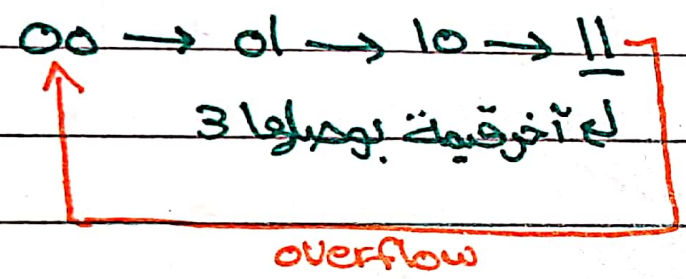 00 → 01 → 10 → 11
لـ آخر قيمة بوصلها 3
overflow